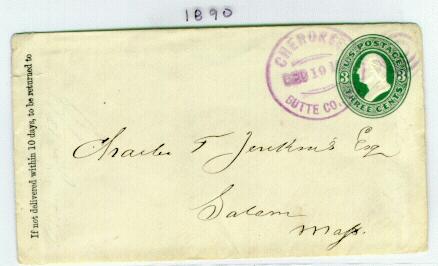 1890
If not delivered within 10 days, to be returned to
CHEROKEE
DEC 19 1
BUTTE CO.
U.S. POSTAGE
3 3
THREE CENTS
Charles T. Jenkins Esq
Salem
Mass.